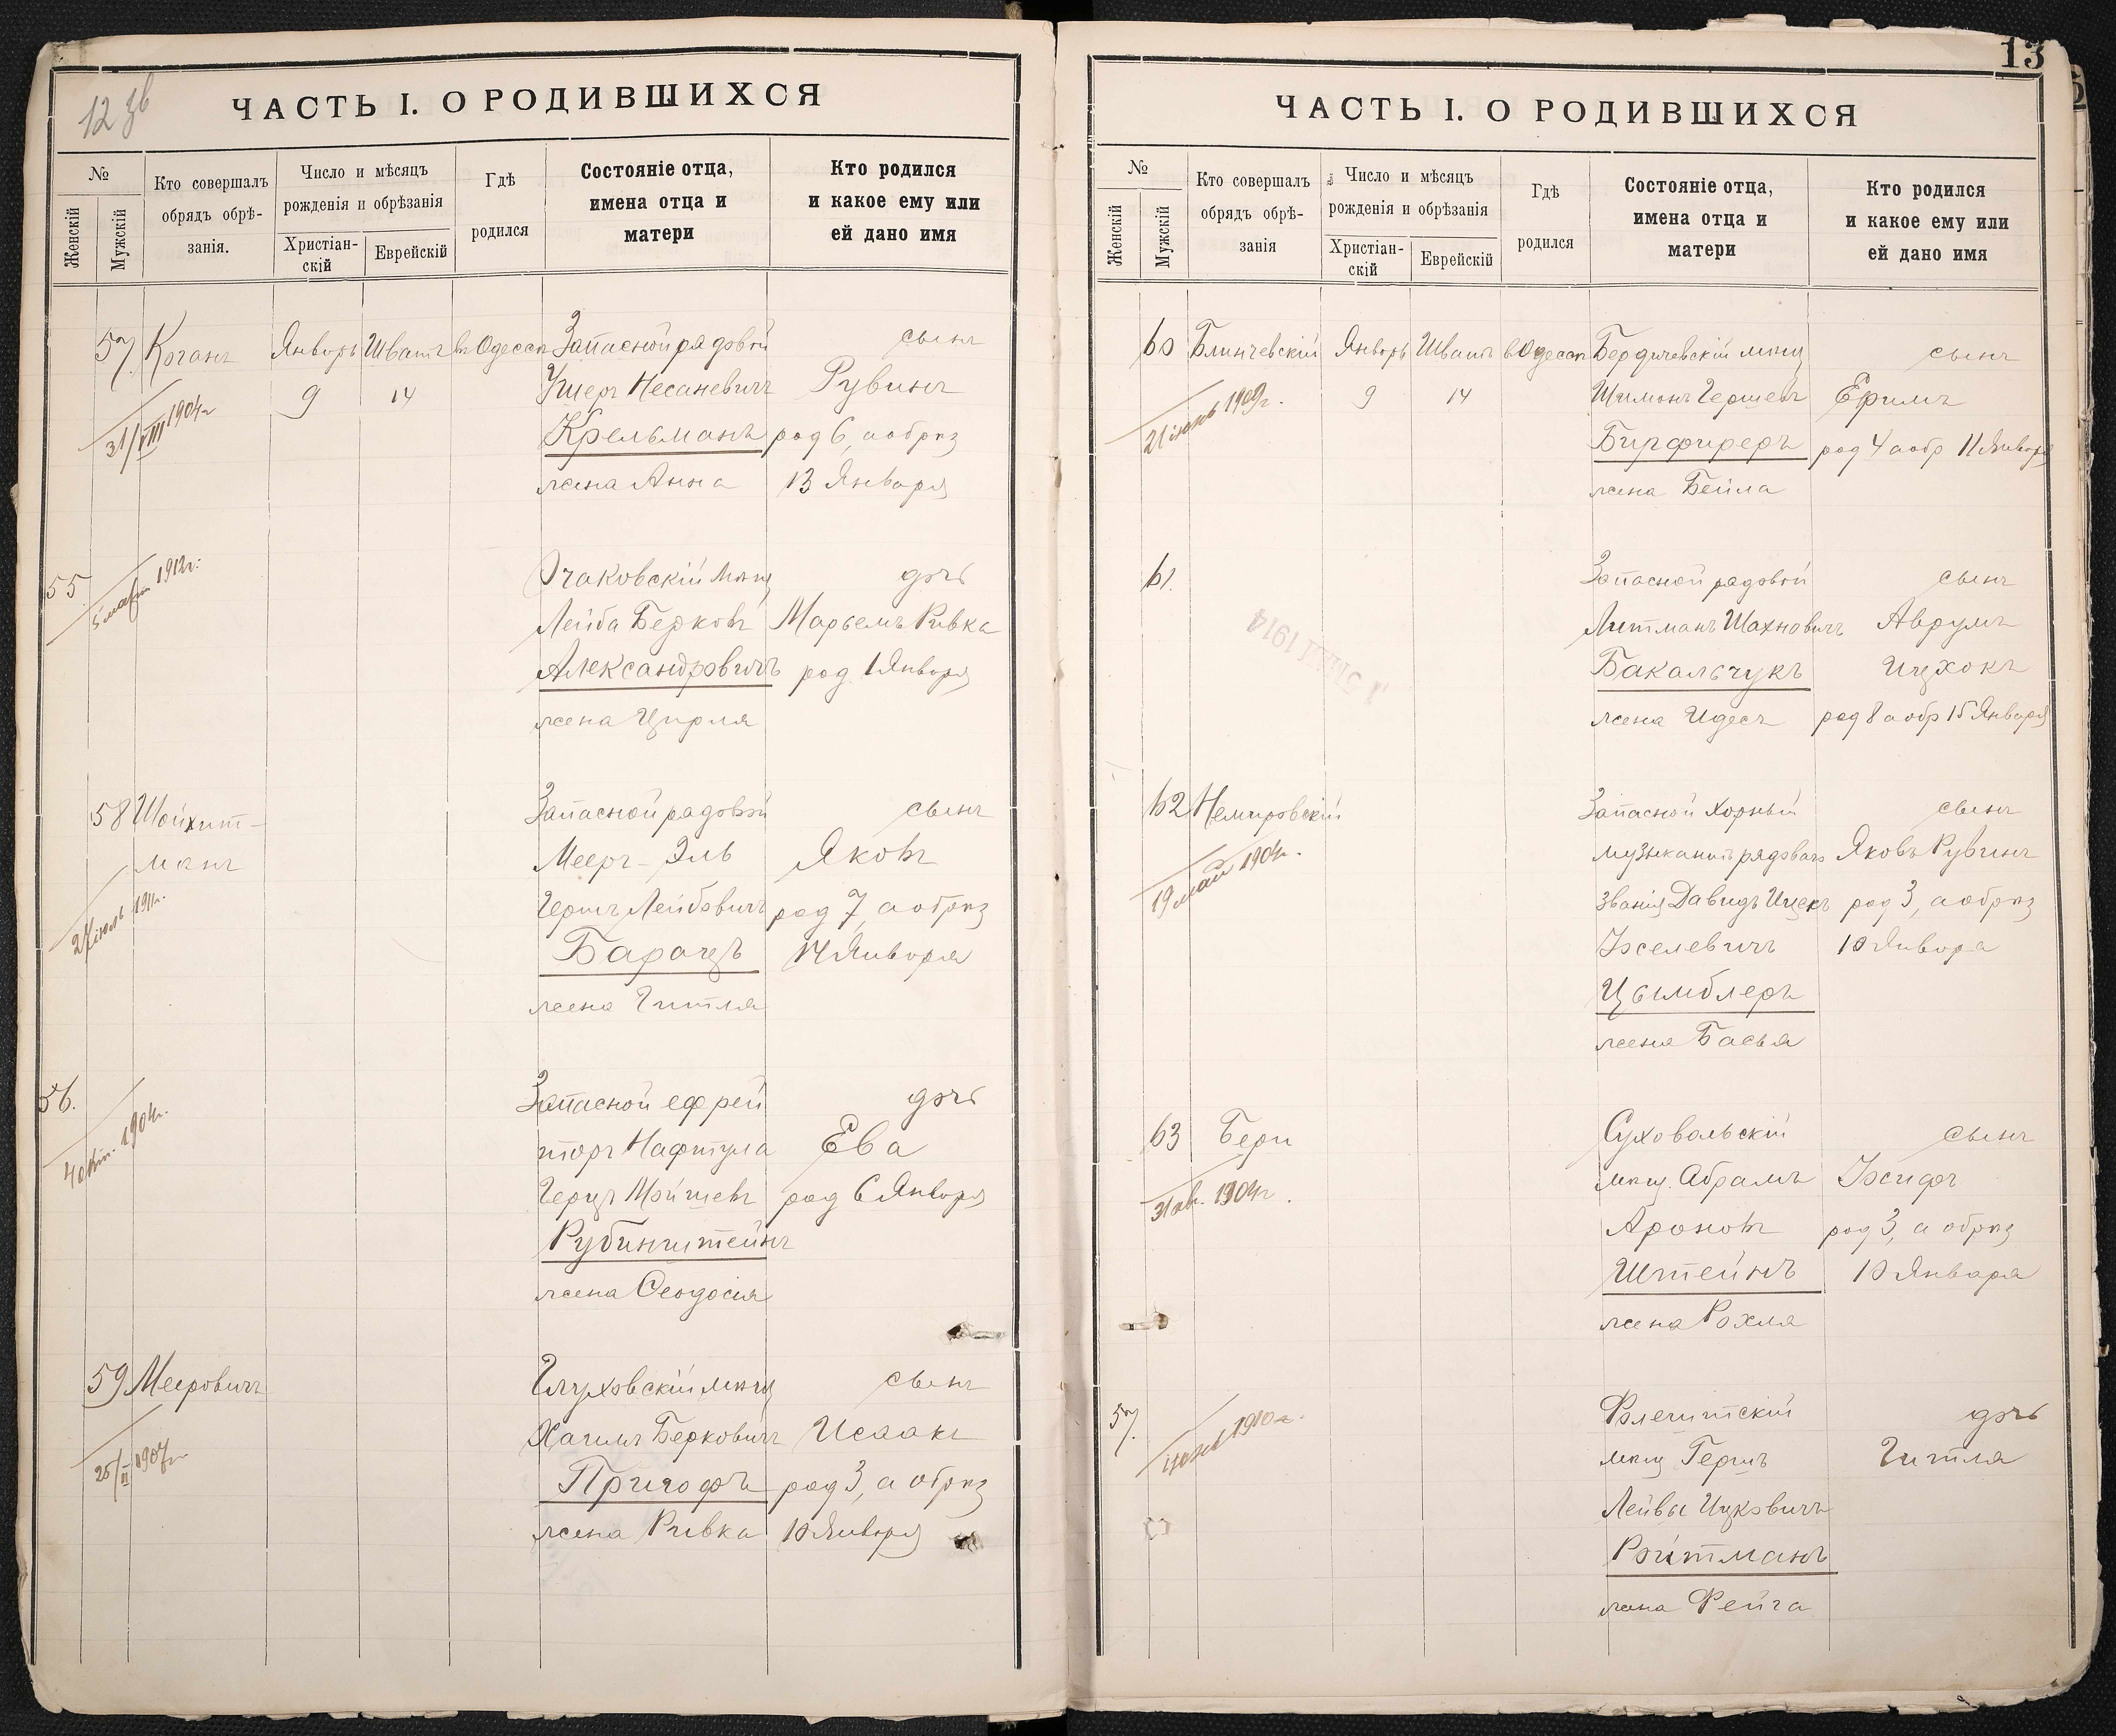 12 зв
ЧАСТЬ I. О РОДИВШИХСЯ
№
Женскій
Мужскій
Кто совершалъ
обрядъ обрѣ-
занія.
Число и мѣсяцъ
рожденія и обрѣзанія
Христіан-
скій
Еврейскій
Гдѣ
родился
Состояніе отца,
имена отца и
матери
Кто родился
и какое ему или
ей дано имя
57. Коганъ Январь Шватъ въ Одессѣ Запасной рядовой сынъ
31/VIII 1904г 9 14 Ушеръ Несаневичъ Рувинъ
Крельманъ род 6, а обрѣз
жена Анна 13 Января
55 Очаковскій мѣщ дочь
1912г. Лейба Берковъ Марьемъ Ривка
Александровичъ род. 1 Января
жена Цирля
58 Шойхит- Запасной рядовой сынъ
манъ Мееръ-Эль Яковъ
1911г. Гершъ Лейбовичъ род 7, а обрѣз
Барацъ 14 Января
жена Гитля
56. Запасной ефрей дочь
4 окт. 1904г. торъ Нафтула Ева
Герцъ Мойшевъ род 6 Января
Рубинштейнъ
жена Феодосія
59 Мееровичъ Глуховскій мѣщ сынъ
25/II 1907г Хаимъ Берковичъ Исаакъ
Пригофъ род 3, а обрѣз
жена Ривка 10 Января
13
ЧАСТЬ I. О РОДИВШИХСЯ
№
Женскій
Мужскій
Кто совершалъ
обрядъ обрѣ-
занія
Число и мѣсяцъ
рожденія и обрѣзанія
Христіан-
скій
Еврейскій
Гдѣ
родился
Состояніе отца,
имена отца и
матери
Кто родился
и какое ему или
ей дано имя
60 Блинчевскій Январь Шватъ въ Одессѣ Бердичевскій мѣщ сынъ
1909г. 9 14 Шимонъ Гершевъ Ефимъ
Бирфиреръ род 4 а обр 11 Января
жена Бейла
61. Запасной рядовой сынъ
1914 Литманъ Шахновичъ Аврумъ
Бакальчукъ Ицхокъ
жена Идесъ род 8 а обр 15 Января
62 Немировскій Запасной хорный сынъ
19 май 1904г. музыкантъ рядоваго Яковъ Рувинъ
званія Давидъ Ицекъ род 3, а обрѣз
Іоселевичъ 10 Января
Цымблеръ
жена Басья
63 Бери Суховольскій сынъ
31 ав. 1904г. мѣщ. Абрамъ Іосифъ
Ароновъ род 3, а обрѣз
Штейнъ 10 Января
жена Рохля
57. Фалештскій дочь
1910г. мѣщ Гершъ Гитля
Лейвы Ицковичъ
Ройтманъ
жена Фейга